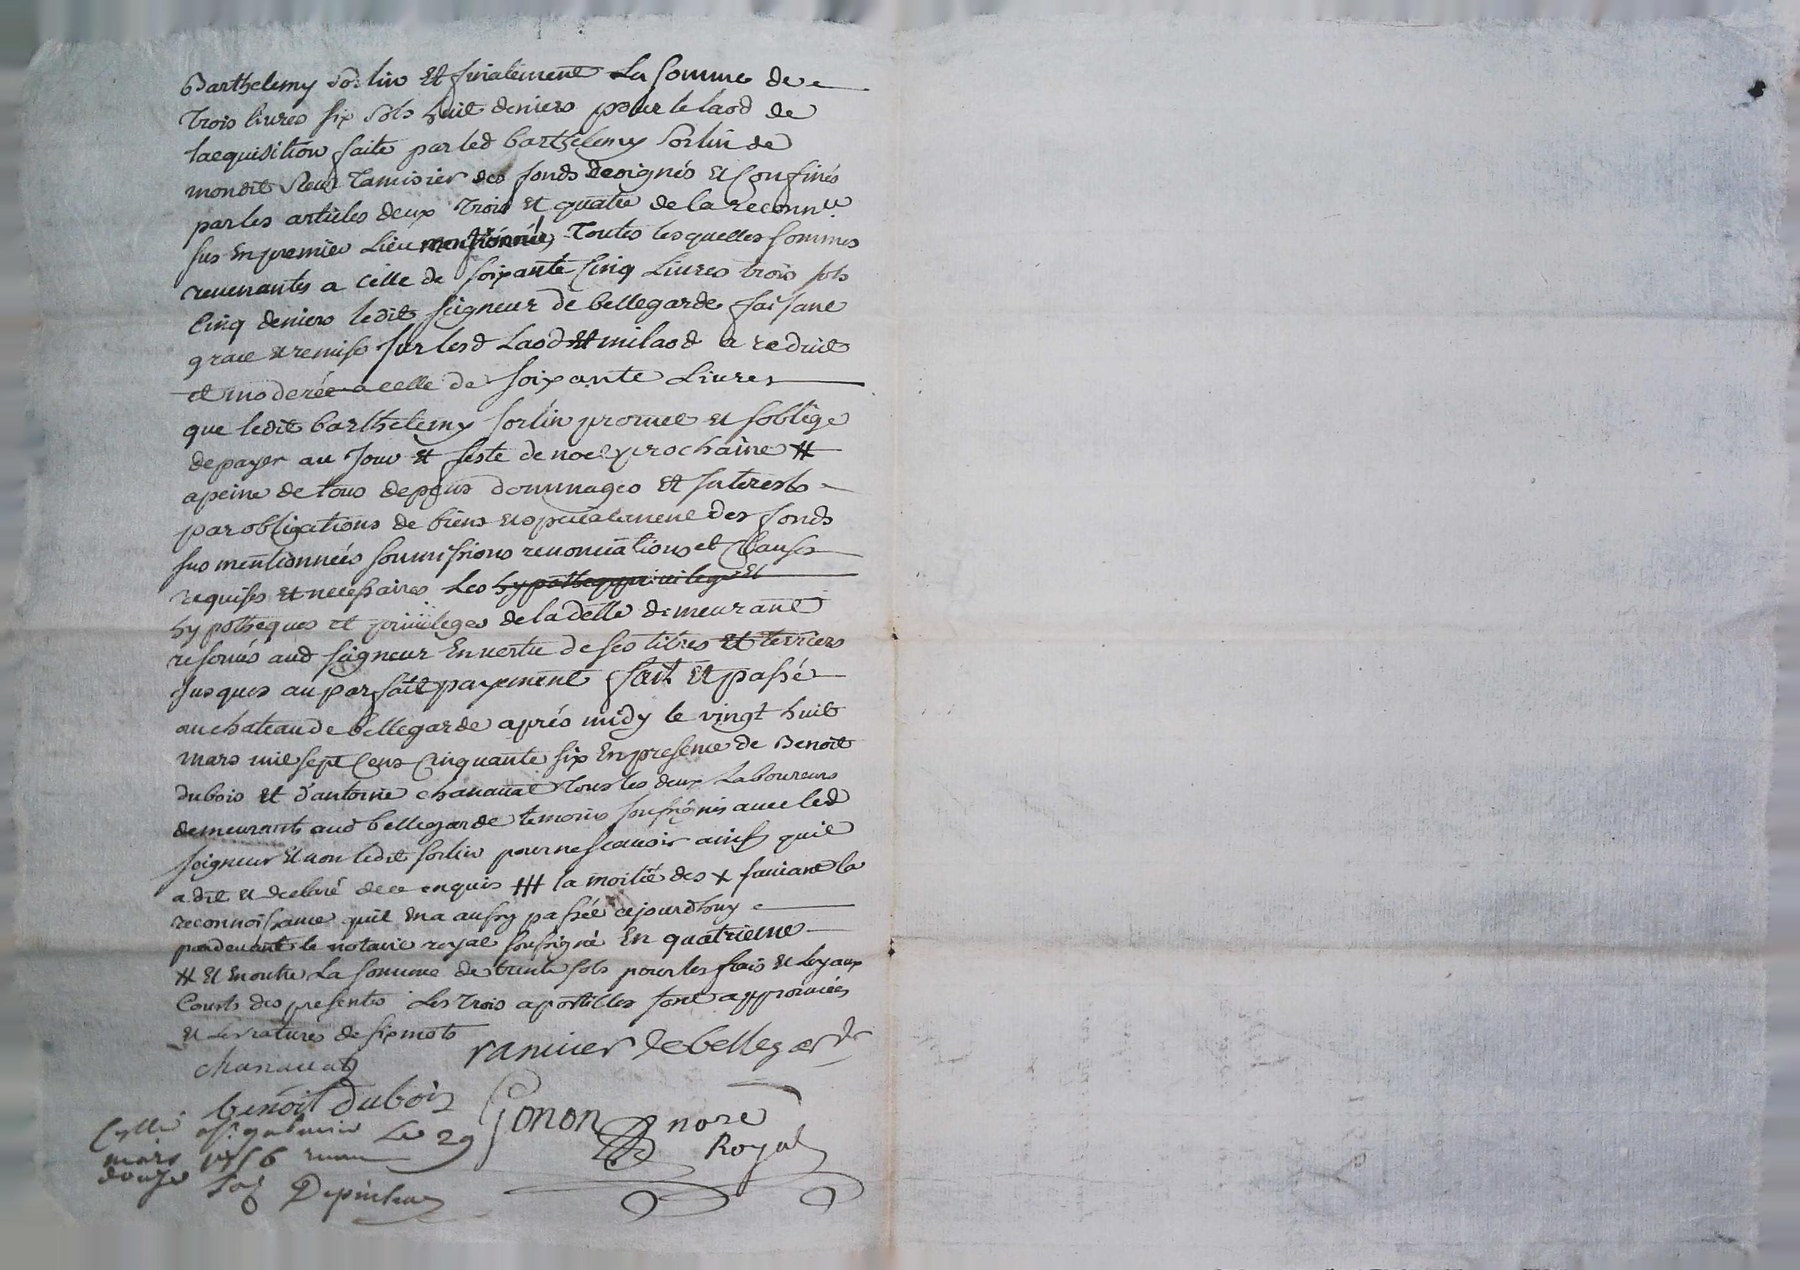 Barthelemy Sorlin Et finalement La somme de
trois livres six sols huit deniers pour le laod de
lacquisition faite par led barthelemy Sorlin de
mondit Sieur Tamisier des fonds designés et Confinés
par les articles deux trois et quatre de la reconnce
sus En premier Lieu mentionnée, Toutes lesquelles sommes
revenantes a celle de soixante Cinq Livres trois sols
Cinq deniers ledit seigneur de bellegarde faisant
grace et remise sur lesd Laod et milaod a reduit
et moderée a celle de soixante Livres
que ledit barthelemy sorlin promet et soblige
de payer au Jour et feste de noel prochaine #
a peine de tous depens dommages et Interests
par obligations de biens et specialement des fonds
sus mentionnées soumissions renonciations et Clauses
requises et necessaires Les hypotheq privileges Et
hypotheques et privileges de la dette demeurant
reservés aud seigneur En vertu de ses titres et terriers
Jusques au parfait payement fait Et passé
au chateau de bellegarde aprés midy le vingt huit
mars mil sept Cens Cinquante six En presence de Benoit
dubois et d'antoine chanavat tous les deux Laboureurs
demeurants aud bellegarde temoins soussignés avec led
seigneur et non ledit sorlin pour ne scavoir ainsy quil
a dit et declaré de ce enquis ### la moitié des x suivant la
reconnoissance quil En a aussy passée cejourdhuy
pardevant le notaire royal soussigné En quatrieme
# et En outre La somme de trente sols pour les frais et loyaux
Couts des presentes Les trois apostilles sont approuvées
et Les ratures de six mots
chanavat ramier de bellegarde
benoit dubois Gonon nore
Le 29 Royal
mars 1756
douze sols